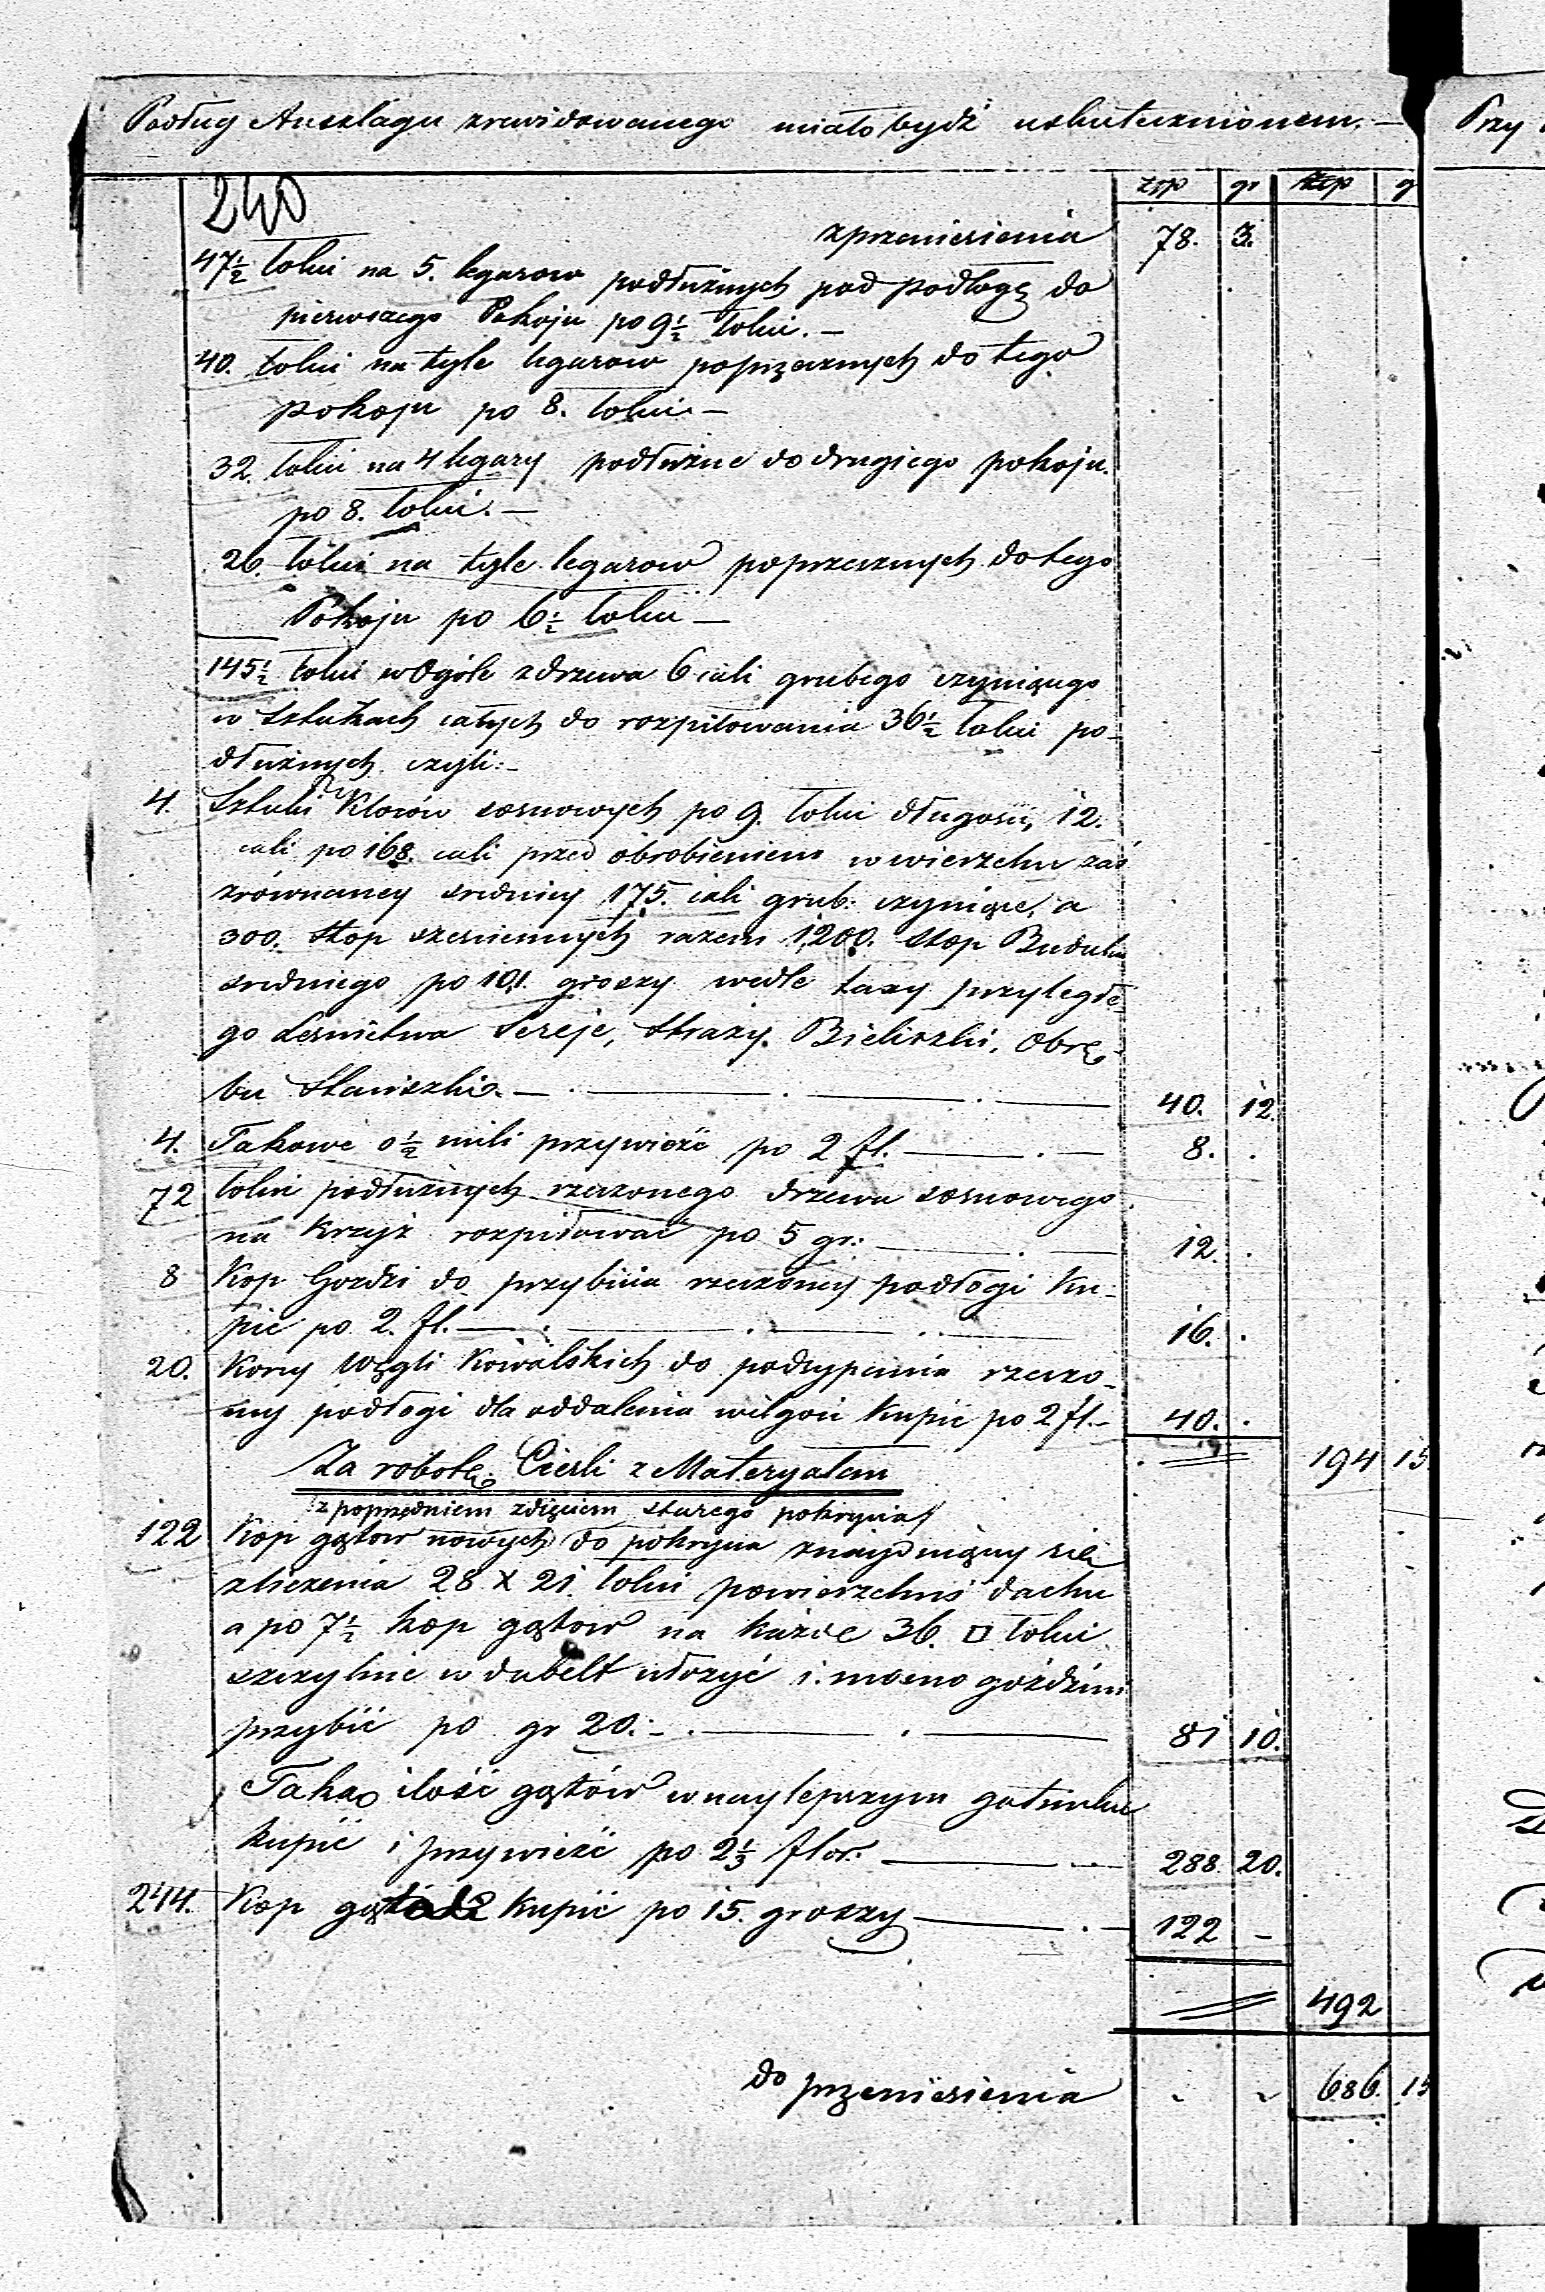 Podług Anszlagu zrewidowanego miało bydź uskutecznionem. — Przy
złp gr złp g
240
z przeniesienia 78. 3.
47½ łokci na 5. legarow podłużnych pod podłogę do
pierwszego Pokoju po 9½ łokci. —
40. łokci na tyle legarow poprzecznych do tego
pokoju po 8. łokci —
32. łokci na 4 legary podłużne do drugiego pokoju
po 8. łokci. —
26. łokci na tyle legarow poprzecznych do tego
Pokoju po 6½ łokci —
145½ łokci w Ogóle z drzewa 6 cali grubego czyniącego
w sztukach całych do rozpiłowania 36½ łokci po-
dłużnych czyli: –
4. Sztuki Klocow sosnowych po 9. łokci długości, 12.
cali po 168. cali przed obrobieniem w wierzchu zaś
zrównaney srednicy 175. cali grub: czyniące, a
300. stop szesciennych razem 1,200. stop Budulcu
sredniego po 101. groszy wedle taxy przyległe-
go Lesnictwa Sereje, Strazy. Bieliszki, Obrę-
bu Staniszki. — 40. 12.
4. Takowe o ½ mili przywieźć po 2 fl. — 8. .
72 łokci podłużnych rzeczonego drzewa sosnowego
na Krzyż rozpiłować po 5 gr: — 12. .
8 Kop Gozdzi do przybicia rzeczoney podłogi Ku-
pić po 2. fl. — 16. .
20. Korcy Węgli Kowalskich do podsypania rzeczo-
ney podłogi dla oddalenia wilgoci Kupić po 2 fl. – 40. .
194 15.
Za robotę Cieśli z Materyałem
/z poprzedniem zdięciem starego pokrycia/
122 Kop gątow nowych do pokrycia znayduiącey się
zliczenia 28 X 21. łokci powierzchni dachu
a po 7½ kop gątow na każde 36. □ łokci
szczylnie w dubelt ułożyć i mocno goździmi
przybić po gr 20. – 81 10.
Taką ilość gątów w naylepszym gatunku
kupić i przywieźć po 2⅓ flor. — 288. 20.
244. Kop gątali Kupić po 15. groszy — 122 –
492
do przeniesienia 686. 15